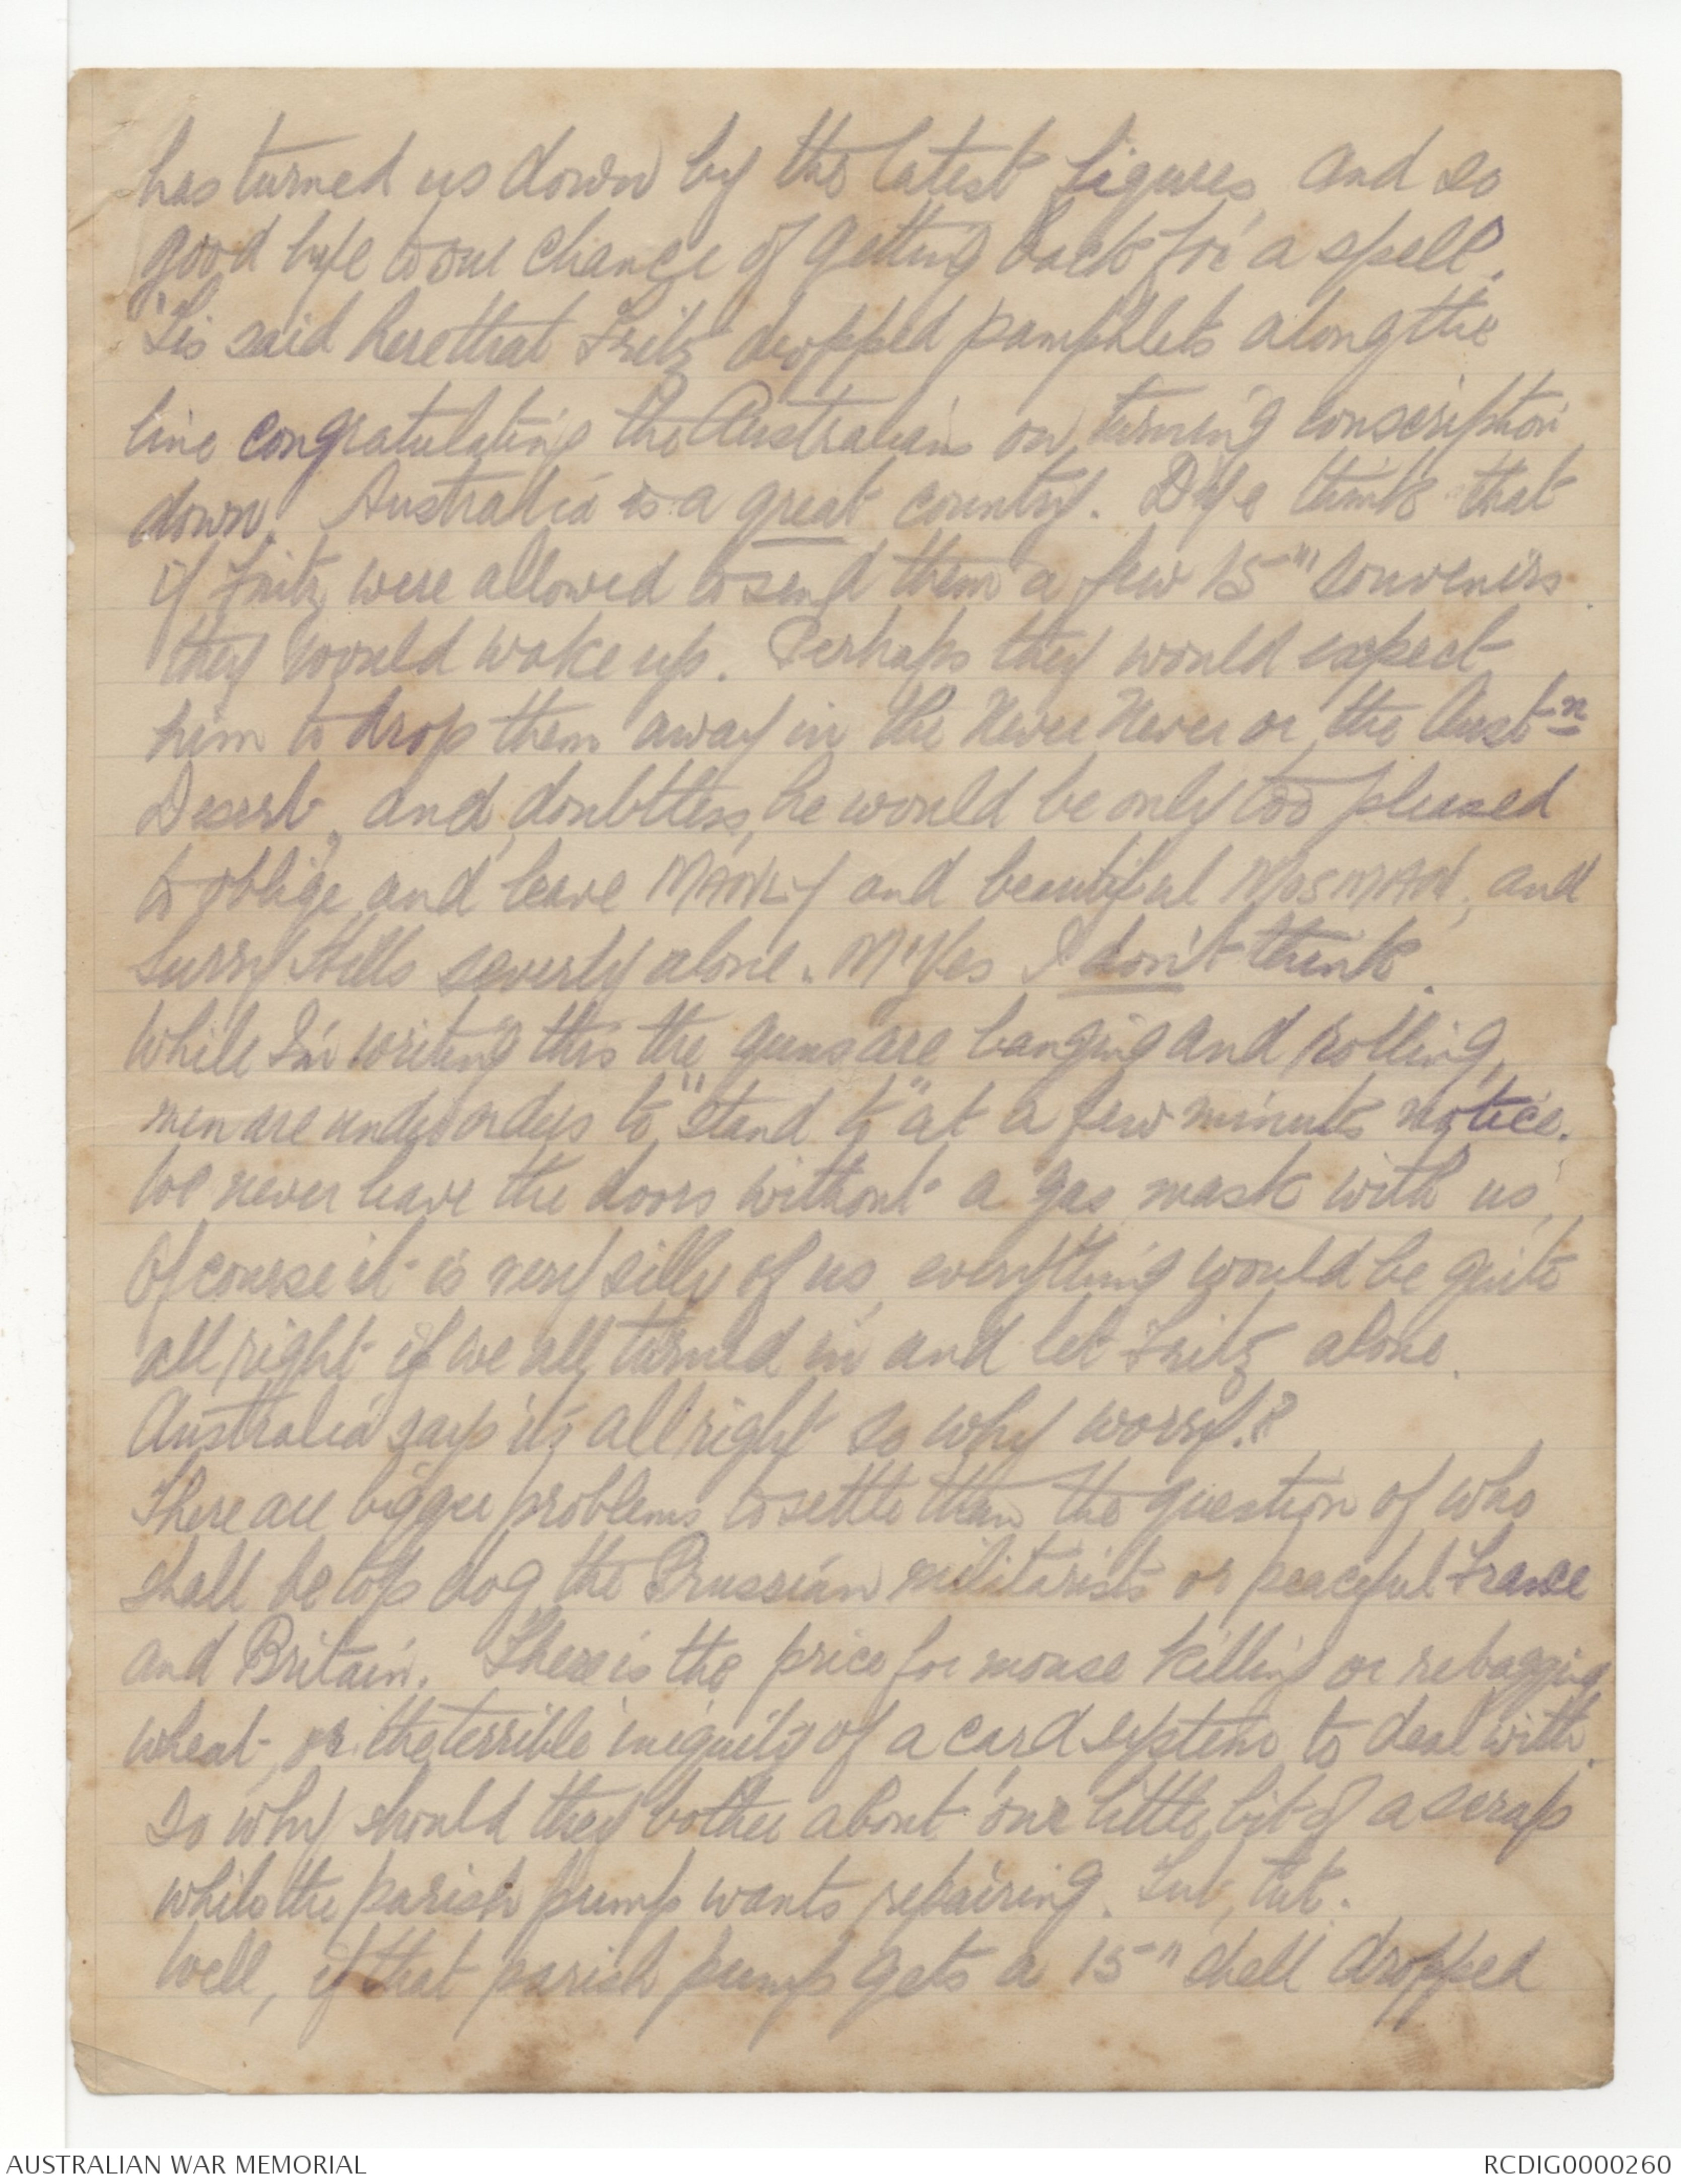 has turned us down by the latest figures, and so
good bye to our chance of getting back for a spell.
'Tis said here that Fritz dropped pamphlets along the
line congratulating the Australians on turning conscription
down. Australia is a great country. D'ye think that
if Fritz were allowed to send them a few 15" souvenirs
they would wake up. Perhaps they would expect
him to drop them away in the Never Never or the Aust<u>n</u>
Desert, and, doubtless, he would be only too pleased
to oblige and leave MANLY and beautiful MOSMAN, and
Surry Hills severly alone. M'Yes I don't think.
While I'm writing this the guns are banging and rolling,
men are under orders to "stand to" at a few minutes notice.
We never leave the doors without a gas mask with us,
Of course it is very silly of us, everything would be quite
all right if we all turned in and let Fritz alone.
Australia says its all right so why worry.?
There are bigger problems to settle than the question of who
shall be top dog the Prussian militarists or peaceful France
and Britain. There is the price for mouse killing or rebagging
wheat, or the terrible iniquity of a card system to deal with.
So why should they bother about one little bit of a scrap
while the parish pump wants repairing. Tut, tut.
Well, if that parish pump gets a 15" shell dropped
AUSTRALIAN WAR MEMORIAL
RCDIG0000260